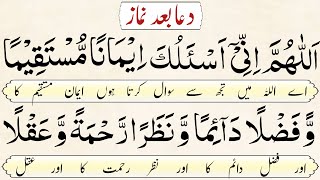 دعا بعد نماز
اَللّٰهُمَّ اِنِّیْۤ اَسْـَٔلُكَ اِیْمَانًا مُّسْتَقِیْمًا
اے اللہ میں تجھ سے سوال کرتا ہوں ایمان مستقیم کا
وَّ فَضْلًا دَآئِمًا وَّ نَظَرًا رَّحْمَةً وَّ عَقْلًا
اور فضل دائم کا اور نظر رحمت کا اور عقل